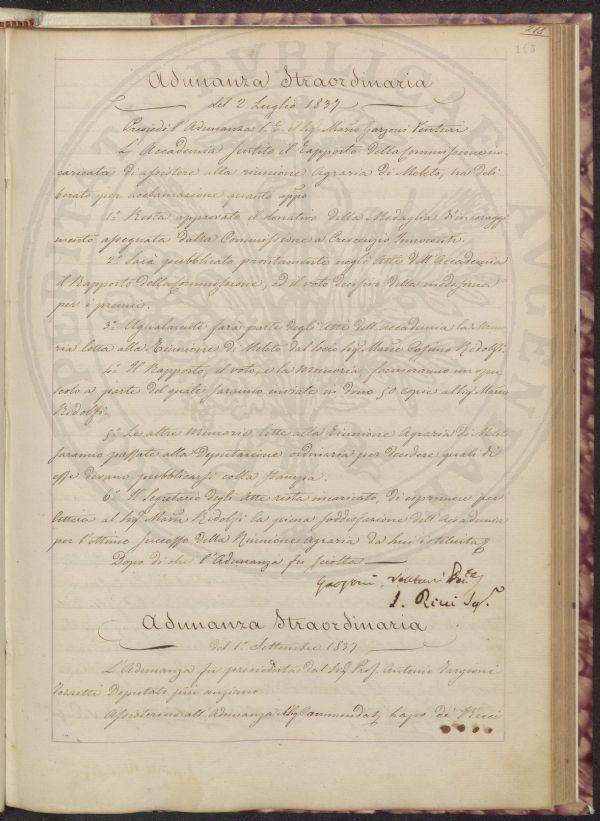 218
165
Adunanza Straordinaria
del 2 Luglio 1837
Presiedè l'Adunanza S.E. il Sig. March. Garzoni Venturi
L'Accademia sentito il Rapporto della Commissione in-
caricata di assistere alla riunione Agraria di Meleto, ha deli-
berato per acclamazione quanto appo
1.° Resta approvato il donativo della Medaglia d'incoraggi
mento assegnata dalla Commissione a Crescenzio Innocenti.
2.° Sarà pubblicato prontamente negli Atti dell'Accademia
il Rapporto della Commissione, ed il voto decisivo della medesima
per i premi.
3.° Ugualmente farà parte degli Atti dell'Accademia la Memo
ria letta alla Riunione di Meleto dal Socio Sig. March. Cosimo Ridolfi.
4.° Il Rapporto, il voto, e la Memoria, formeranno un opu
scolo a parte del quale saranno inviate in dono 50 copie al Sig. March.
Ridolfi.
5.° Le altre Memorie lette alla Riunione Agraria di Meleto
saranno passate alla Deputazione ordinaria per decidere quali di
esse devano pubblicarsi colla stampa.
6.° Il Segretario degli Atti resta incaricato, di esprimere per
lettera al Sig. March. Ridolfi la piena soddisfazione dell'Accademia
per l'ottimo successo della Riunione agraria da lui istituita
Dopo di che l'Adunanza fu sciolta
Garzoni Venturi
L. Ricci Seg.
Adunanza Straordinaria
del 1.° Settembre 1837
L'Adunanza fu presieduta dal Sig. Prof. Antonio Targioni
Tozzetti Deputato più anziano
Assisterono all'Adunanza Sig. Commendat. Lapo de' Ricci